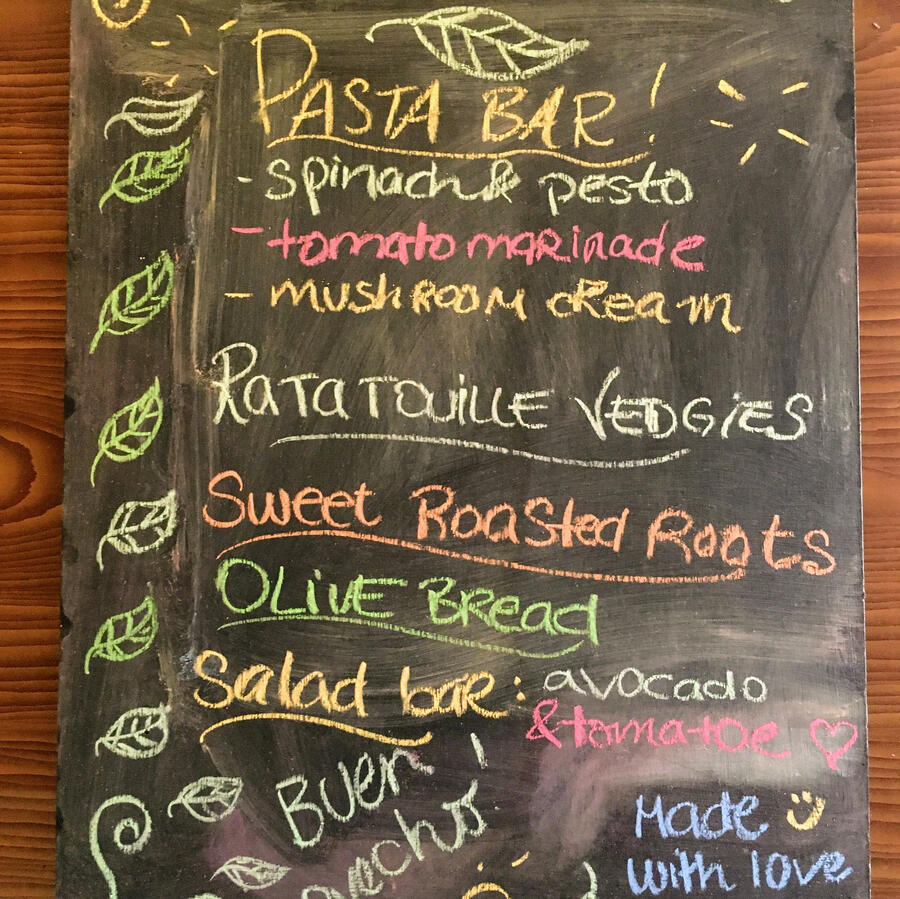 PASTA BAR!
- spinach & pesto
- tomato marinade
- mushroom cream
RATATOUILLE VEDGIES
Sweet Roasted Roots
OLIVE BRead
Salad bar: avocado
& tomatoe
Buen
Made
with love